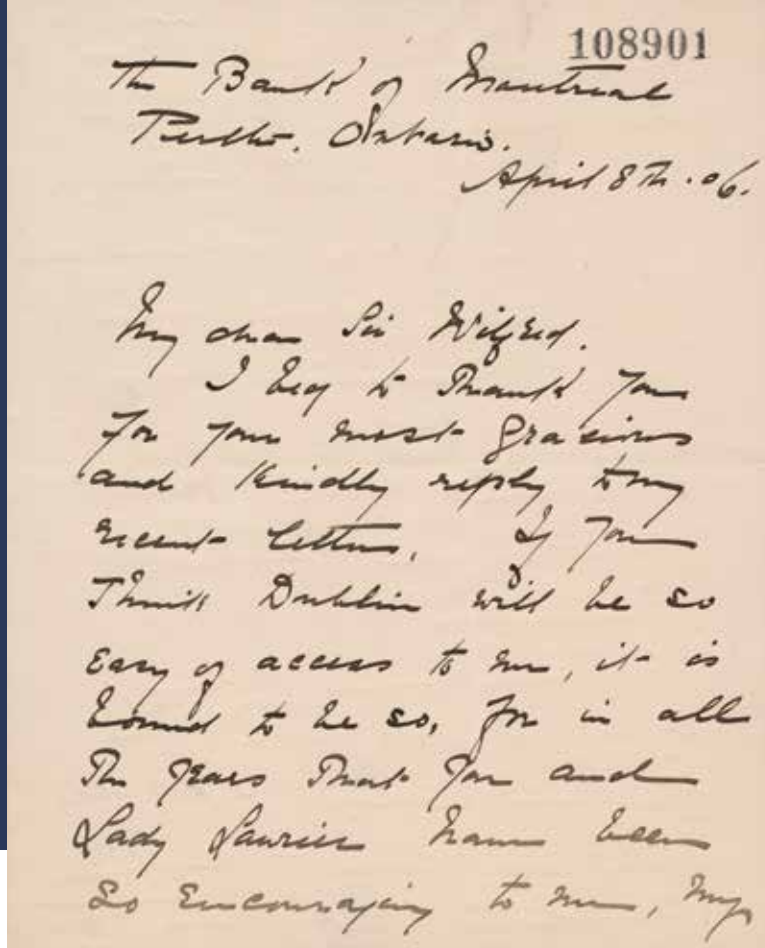 108901
The Bank of Montreal
Perth. Ontario.
April 8th. 06.
My dear Sir Wilfred.
I beg to thank you
for your most gracious
and kindly reply to my
recent letter. If you
think Dublin will be so
easy of access to me, it is
bound to be so, for in all
the years that you and
Lady Laurier have been
so encouraging to me, my